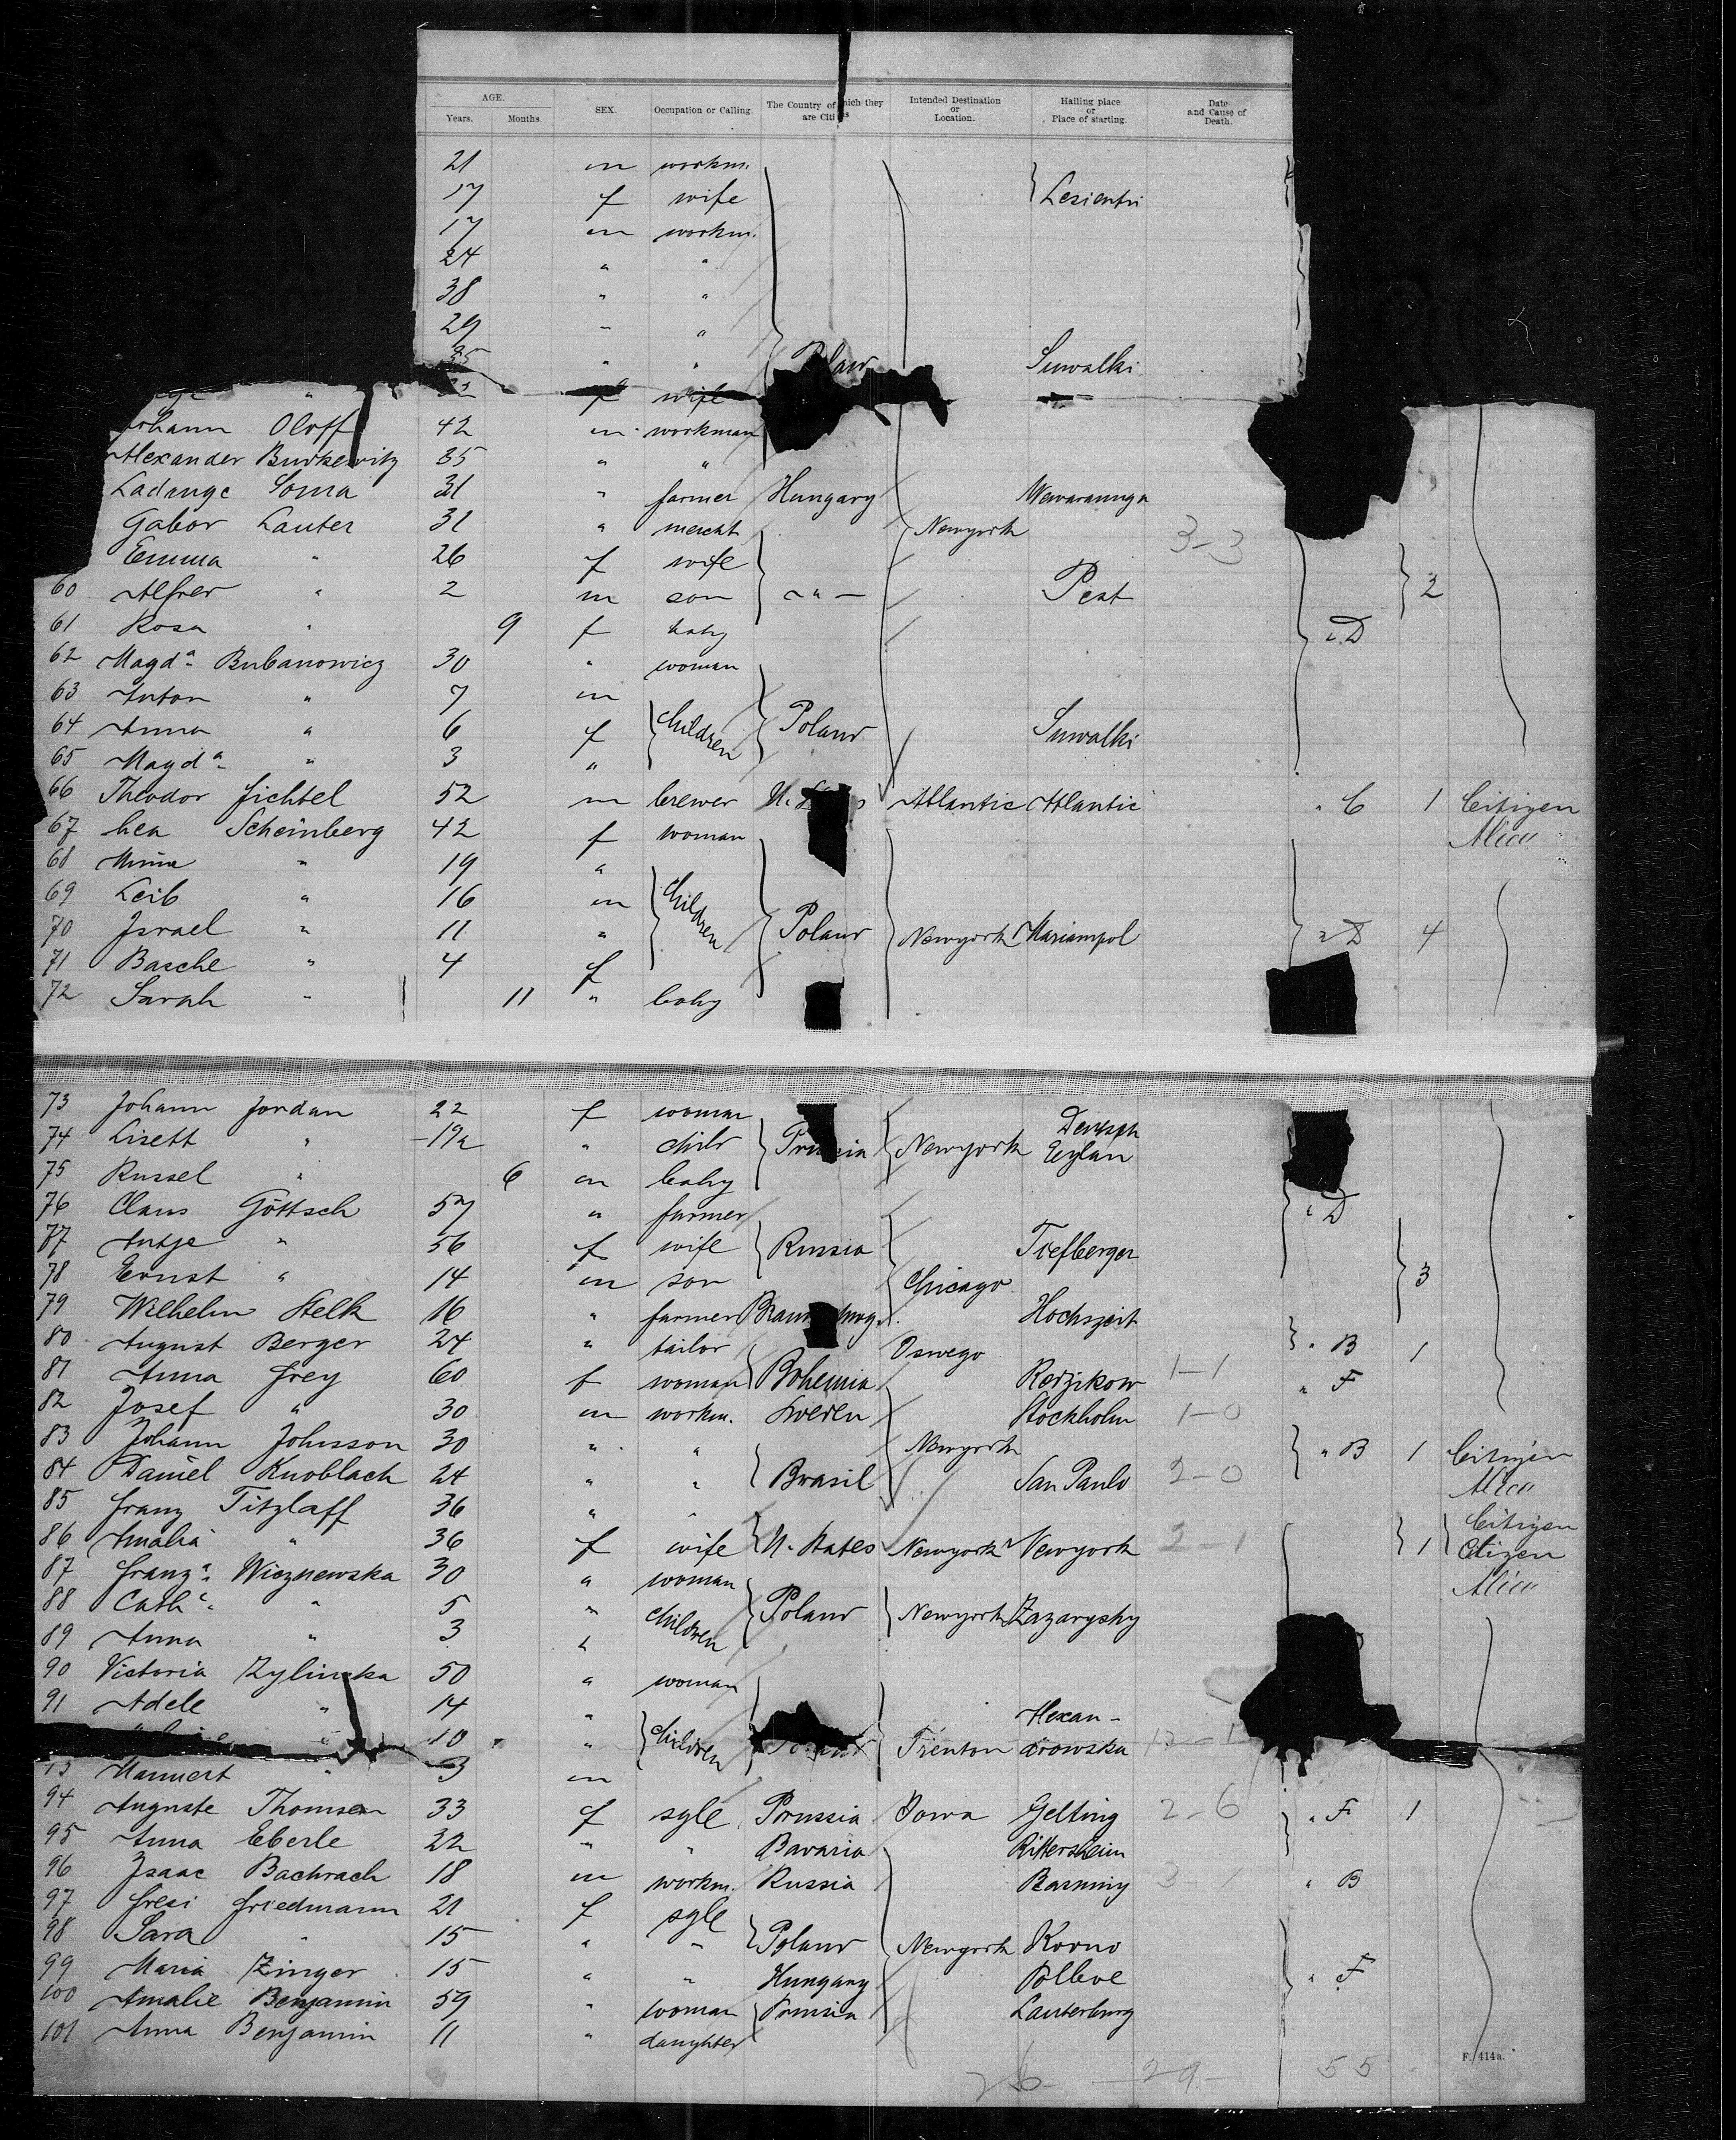 AGE.
Years. Months. SEX. Occupation or Calling. The Country of which they are Citi s Intended Destination or Location. Hailing place or Place of starting. Date and Cause of Death.
21 m workm.
17 f wife
17 m workm.
24 " "
38 " "
29 " "
" " Suwalki
f wife
Johann Oloff 42 m workman
Alexander 35 " "
31 " farmer Hungary
Gabor Lauter 31 " mercht Newyork 3-3
Emma " 26 f wife
60 Alfred " 2 m son " Pest 2
61 Rosa " 9 f baby " D
62 Magda Bubanowicz 30 " woman
63 Anton " 7 m
64 Anna " 6 f children Poland Suwalki
65 Magda " 3 "
66 Theodor Fichtel 52 m brewer Atlantic Atlantic " C 1 Citizen
67 Lea Scheinberg 42 f woman Alien
68 " 19 "
69 Leib " 16 m children
70 Israel " 11 " Poland Newyork Mariampol " D 4
71 Basche " 4 f
72 Sarah " 11 " baby
73 Johann Jordan 22 f woman
74 Lisett " " child Newyork Eylau
75 Russel " 6 m baby
76 Claus Göttsch 57 " farmer " D
77 Antje " 56 f wife Russia
78 Ernst " 14 m son Chicago 3
79 Wilhelm Stelk 16 " farmer Hochszeit
80 August Berger 24 " tailor Oswego " B 1
81 Anna Frey 60 f woman Bohemia 1-1 " F
82 Josef " 30 m workm. Sweden Stockholm 1-0
83 Johann Johnsson 30 " " Newyork " B 1 Citizen
84 Daniel Knoblach 24 " " Brasil San Paulo 2-0 Alien
85 Franz Titzlaff 36 " " Citizen
86 Amalia " 36 f wife U. States Newyork Newyork 2-1 1 Citizen
87 Franza Wieznewska 30 " woman Alien
88 Cath " 5 " children Poland Newyork
89 Anna " 3 "
90 Victoria Zylinska 50 " woman
91 Adele " 14 " Alexan-
10 " children Trenton drowska
Mannert " 3 m
94 Auguste Thomsen 33 f sgle Prussia Iowa Gelting 2-6 " F 1
95 Anna Eberle 22 " " Bavaria Rittersheim
96 Isaac Bachrach 18 m workm. Russia 3-1 " B
97 Fresi Friedmann 21 f sgle
98 Sara " 15 " " Poland Newyork Kovno
99 Maria Zinger 15 " " Hungary " F
100 Amalie Benjamin 59 " woman Prussia Lauterburg
101 Anna Benjamin 11 " daughter
26 - 29 - 55
F. 414a.